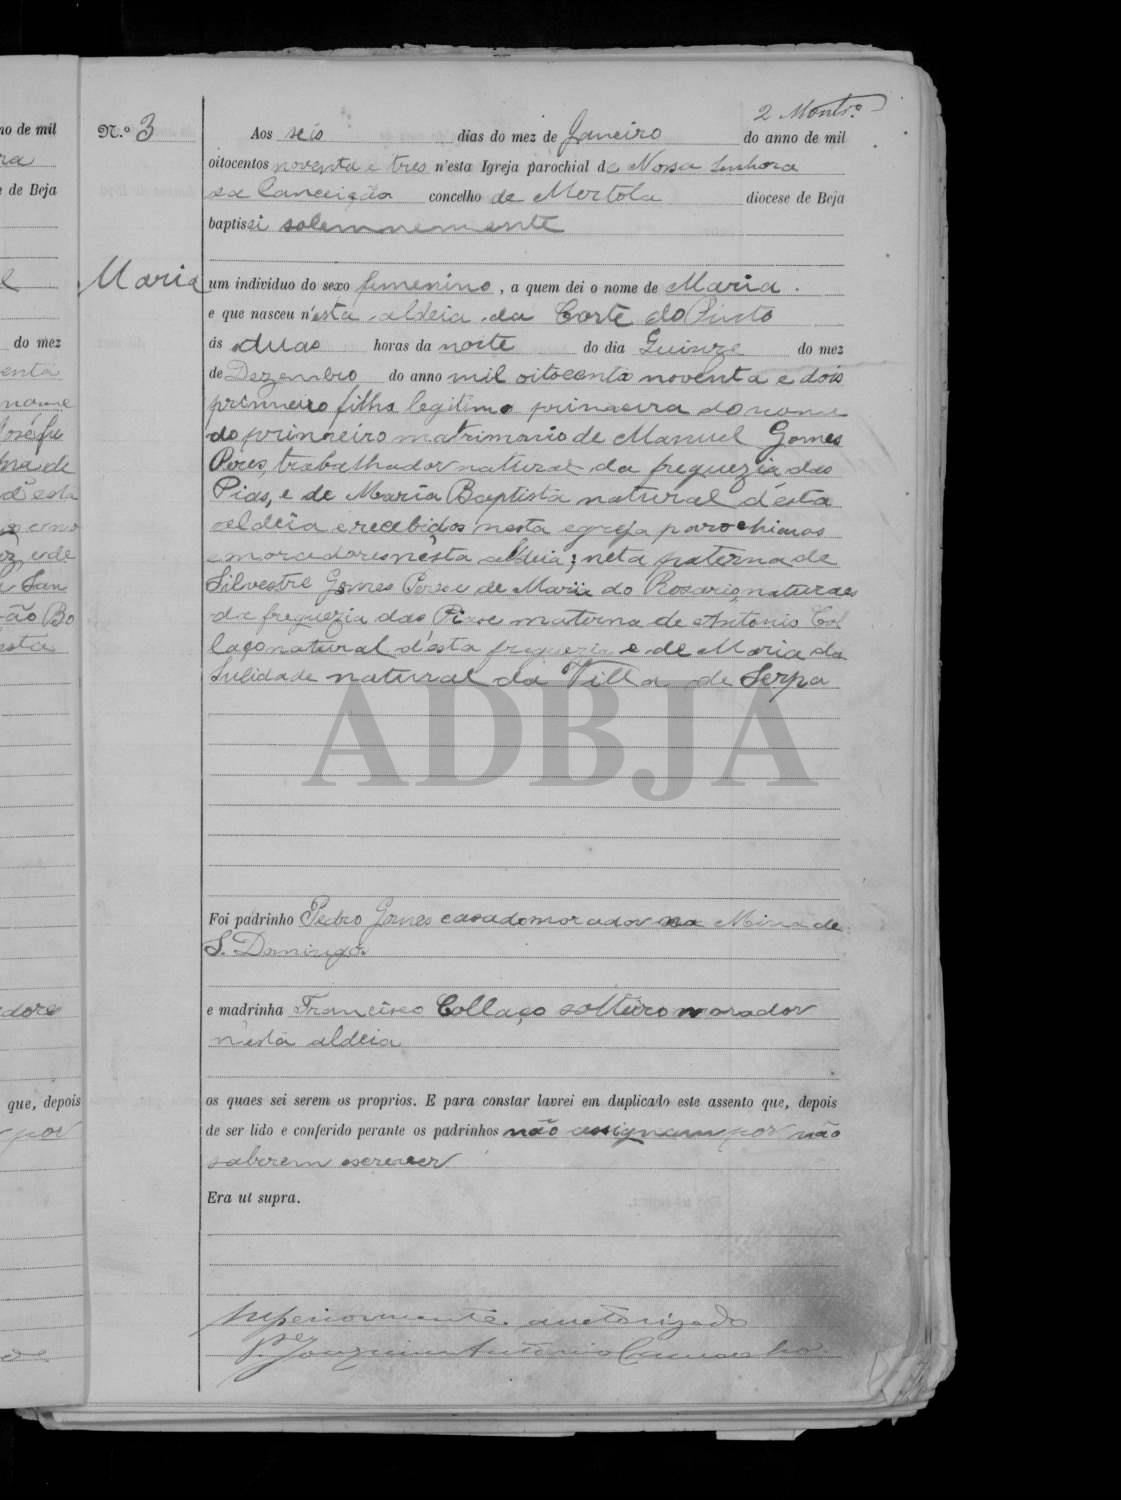 2 Montrº
N.º 3
Aos seis dias do mez de Janeiro do anno de mil
oitocentos noventa e tres n'esta Igreja parochial de Nossa Senhora
da Conceição concelho de Mertola diocese de Beja
baptisei solemnemente
Maria
um individuo do sexo femenino, a quem dei o nome de Maria.
e que nasceu n'esta aldeia da Corte do Pinto
ás duas horas da noite do dia Quinze do mez
de Dezembro do anno mil oitocento noventa e dois
primeiro filha legitima primeira do nome
do primeiro matrimonio de Manuel Gomes
Peres, trabalhador natural da freguezia das
Pias, e de Maria Baptista natural d'esta
aldeia e recebidos nesta egreja parochianos
e moradores nésta aldeia; neta paterna de
Silvestre Gomes Peres e de Maria do Rosario, naturaes
da freguezia das Pias e materna de António Col
laço natural d'esta freguezia e de Maria da
Sulidade natural da Villa de Serpa
ADBJA
Foi padrinho Pedro Gomes casado morador na Mina de
S. Domingos
e madrinha Francisco Collaço solteiro morador
n'esta aldeia
os quaes sei serem os proprios. E para constar lavrei em duplicado este assento que, depois
de ser lido e conferido perante os padrinhos não assignam por não
saberem escrever
Era ut supra.
Superiormente auctorizado
P.e Joaquim António
no de mil
ra
e de Beja
do mez
enta
nome
José fu
d'esta
e San
ão Bo
esta
dores
que, depois
por